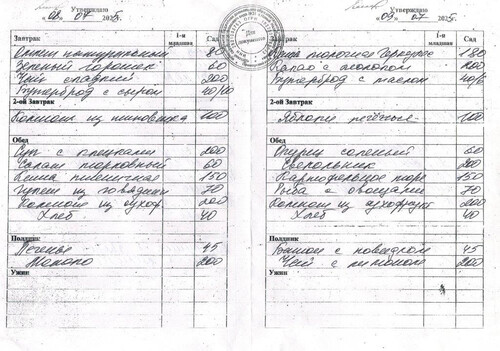 Утверждаю
«08» 07 2025г.
Завтрак
1-я младшая
Сад
Омлет натуральный 80
Зеленый горошек 60
Чай сладкий 200
Бутерброд с сыром 40/10
2-ой Завтрак
Компот из шиповника 100
Обед
Суп с клецками 200
Салат морковный 60
Каша пшеничная 150
Гуляш из говядины 70
Компот из сухоф. 200
Хлеб 40
Полдник
Печенье 45
Молоко 200
Ужин
Для документов
Утверждаю
«09» 07 2025г.
Завтрак
1-я младшая
Сад
Каша молочная Геркулес 180
Какао с молоком 200
Бутерброд с маслом 40/6
2-ой Завтрак
Яблоки печёные 100
Обед
Огурец соленый 60
Свекольник 200
Картофельное пюре 150
Рыба с овощами 70
Компот из сухофрук 200
Хлеб 40
Полдник
с повидлом 45
Чай с лимоном 200
Ужин